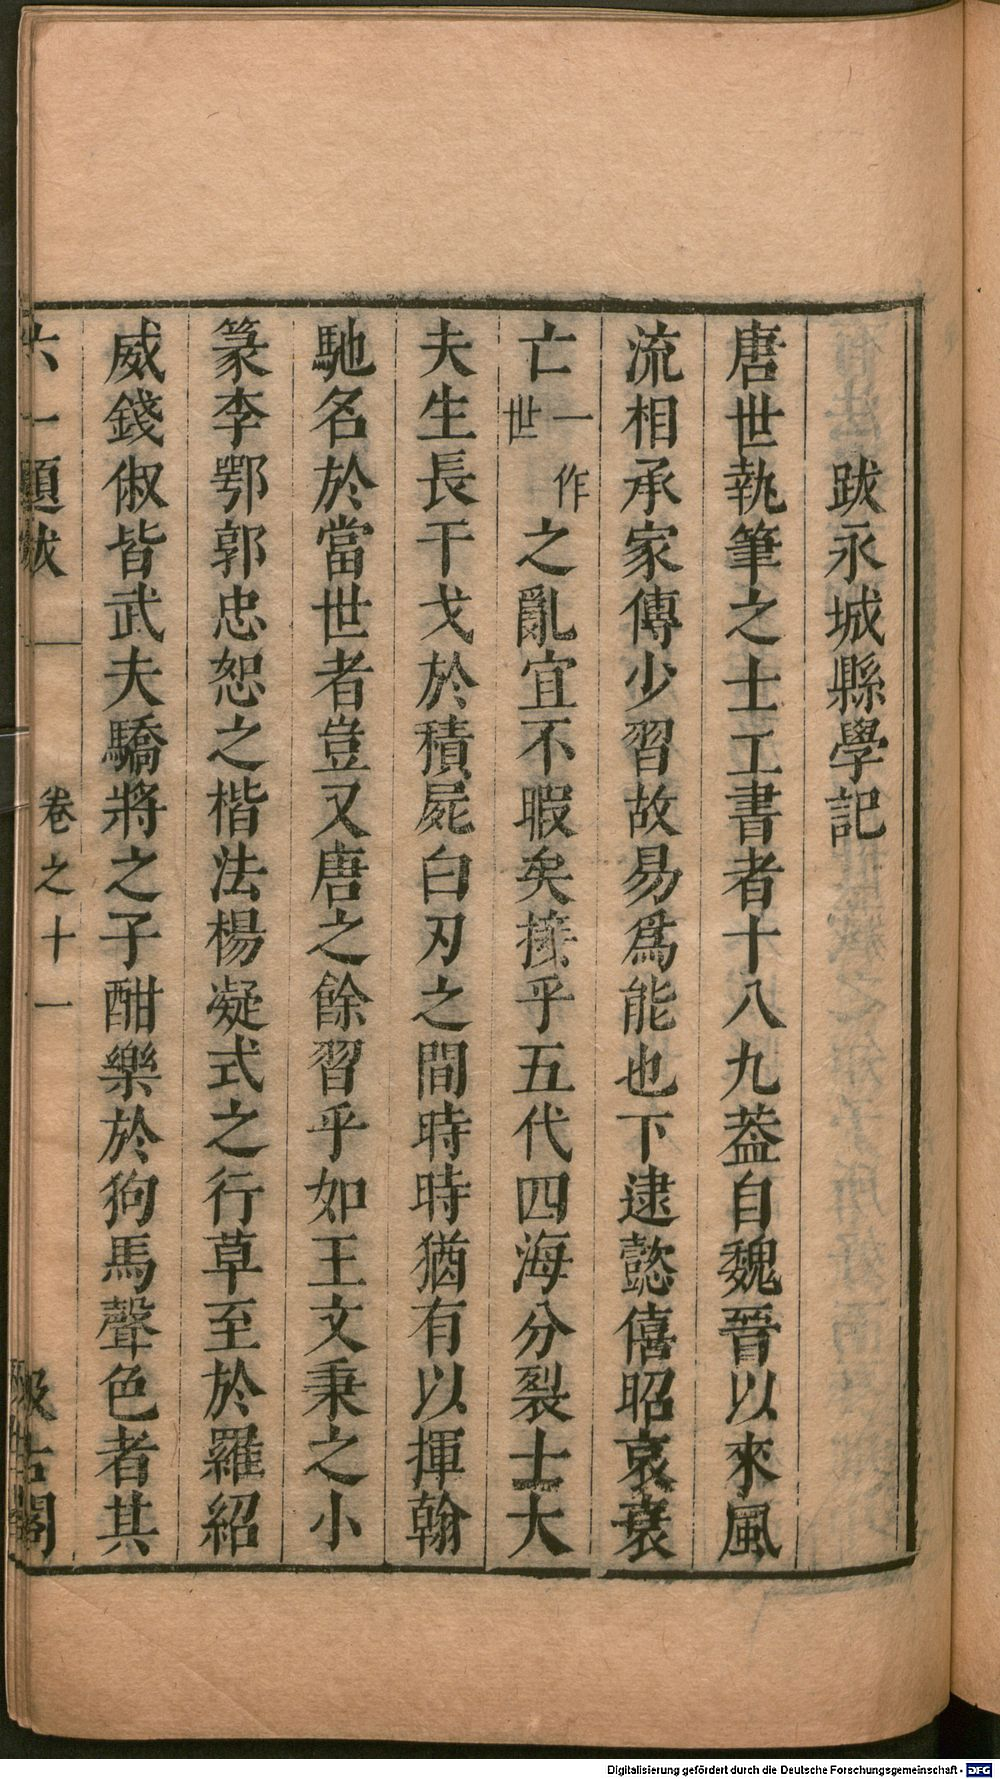 跋永城縣學記
唐世執筆之士工書者十八九葢自魏晉以來風
流相承家傳少習故易爲能也下逮懿僖昭哀衰
亡一作世之亂宜不暇矣接乎五代四海分裂士大
夫生長干戈於積屍白刃之間時時猶有以揮翰
馳名於當世者豈又唐之餘習乎如王文秉之小
篆李鄂郭忠恕之楷法楊凝式之行草至於羅紹
威錢俶皆武夫驕將之子酣樂於狗馬聲色者其
六一題跋 卷之十一 汲古閣
Digitalisierung gefördert durch die Deutsche Forschungsgemeinschaft - DFG